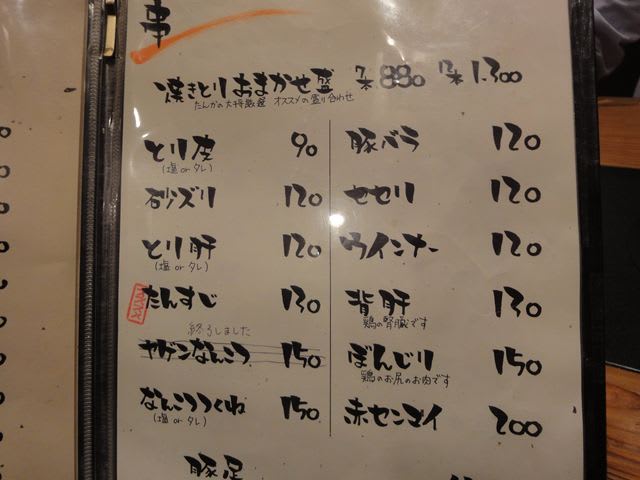 串
焼きとりおまかせ盛 7本 880 12本 1.300
たんかの大将厳選 オススメの盛り合わせ
とり皮 90
(塩 or タレ)
砂ズリ 120
とり肝 120
(塩 or タレ)
たんすじ 130
終了しました
ヤゲンなんこつ 150
なんこつつくね 150
(塩 or タレ)
豚足
豚バラ 120
セセリ 120
ウインナー 120
背肝 130
鶏の腎臓です
ぼんじり 150
鶏のお尻のお肉です
赤センマイ 200